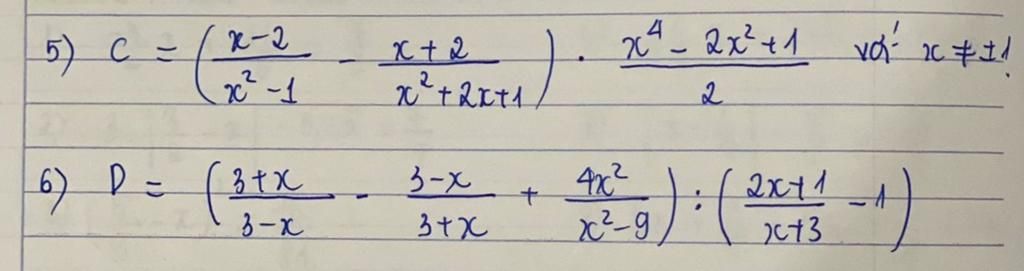 5) C = ( (x-2)/(x² - 1) - (x+2)/(x² + 2x+1) ) . (x⁴ - 2x² + 1)/2 với x ≠ ±1.
6) D = ( (3+x)/(3-x) - (3-x)/(3+x) + 4x²/(x² - 9) ) : ( (2x+1)/(x+3) - 1 )